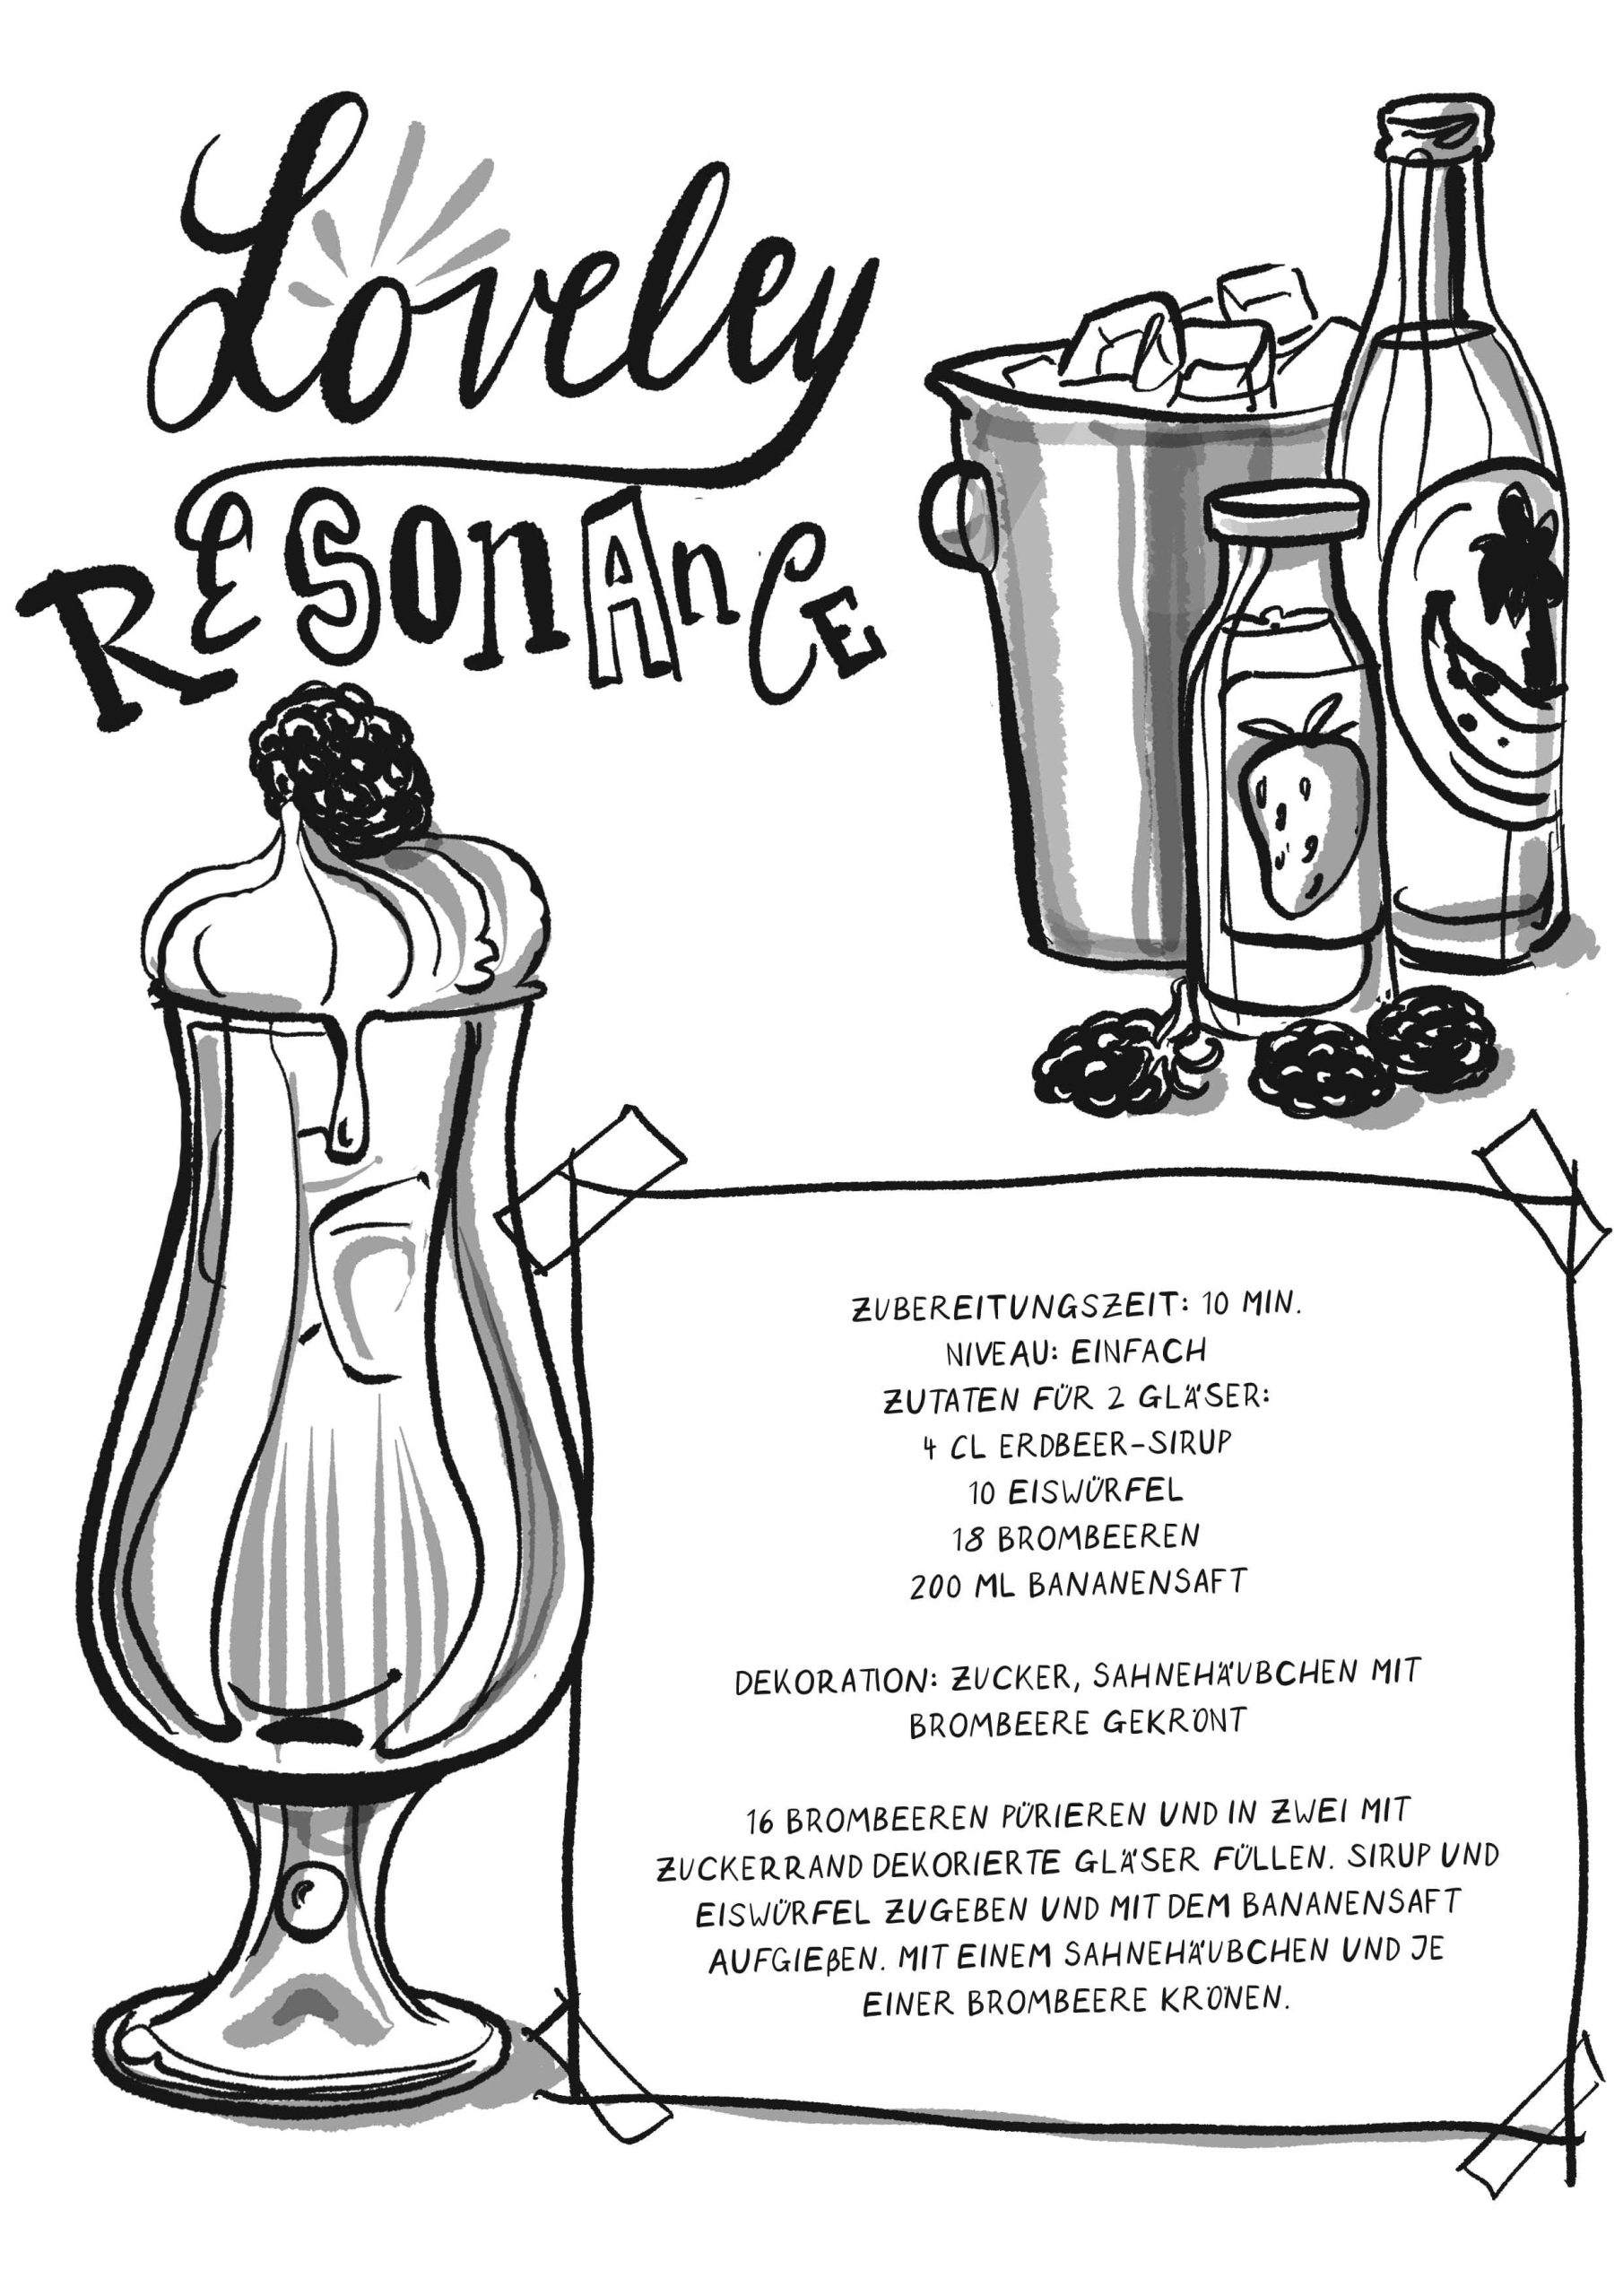 Loveley
RESONANCE
ZUBEREITUNGSZEIT: 10 MIN.
NIVEAU: EINFACH
ZUTATEN FÜR 2 GLÄSER:
4 CL ERDBEER-SIRUP
10 EISWÜRFEL
18 BROMBEEREN
200 ML BANANENSAFT
DEKORATION: ZUCKER, SAHNEHÄUBCHEN MIT
BROMBEERE GEKRÖNT
16 BROMBEEREN PÜRIEREN UND IN ZWEI MIT
ZUCKERRAND DEKORIERTE GLÄSER FÜLLEN. SIRUP UND
EISWÜRFEL ZUGEBEN UND MIT DEM BANANENSAFT
AUFGIEßEN. MIT EINEM SAHNEHÄUBCHEN UND JE
EINER BROMBEERE KRÖNEN.